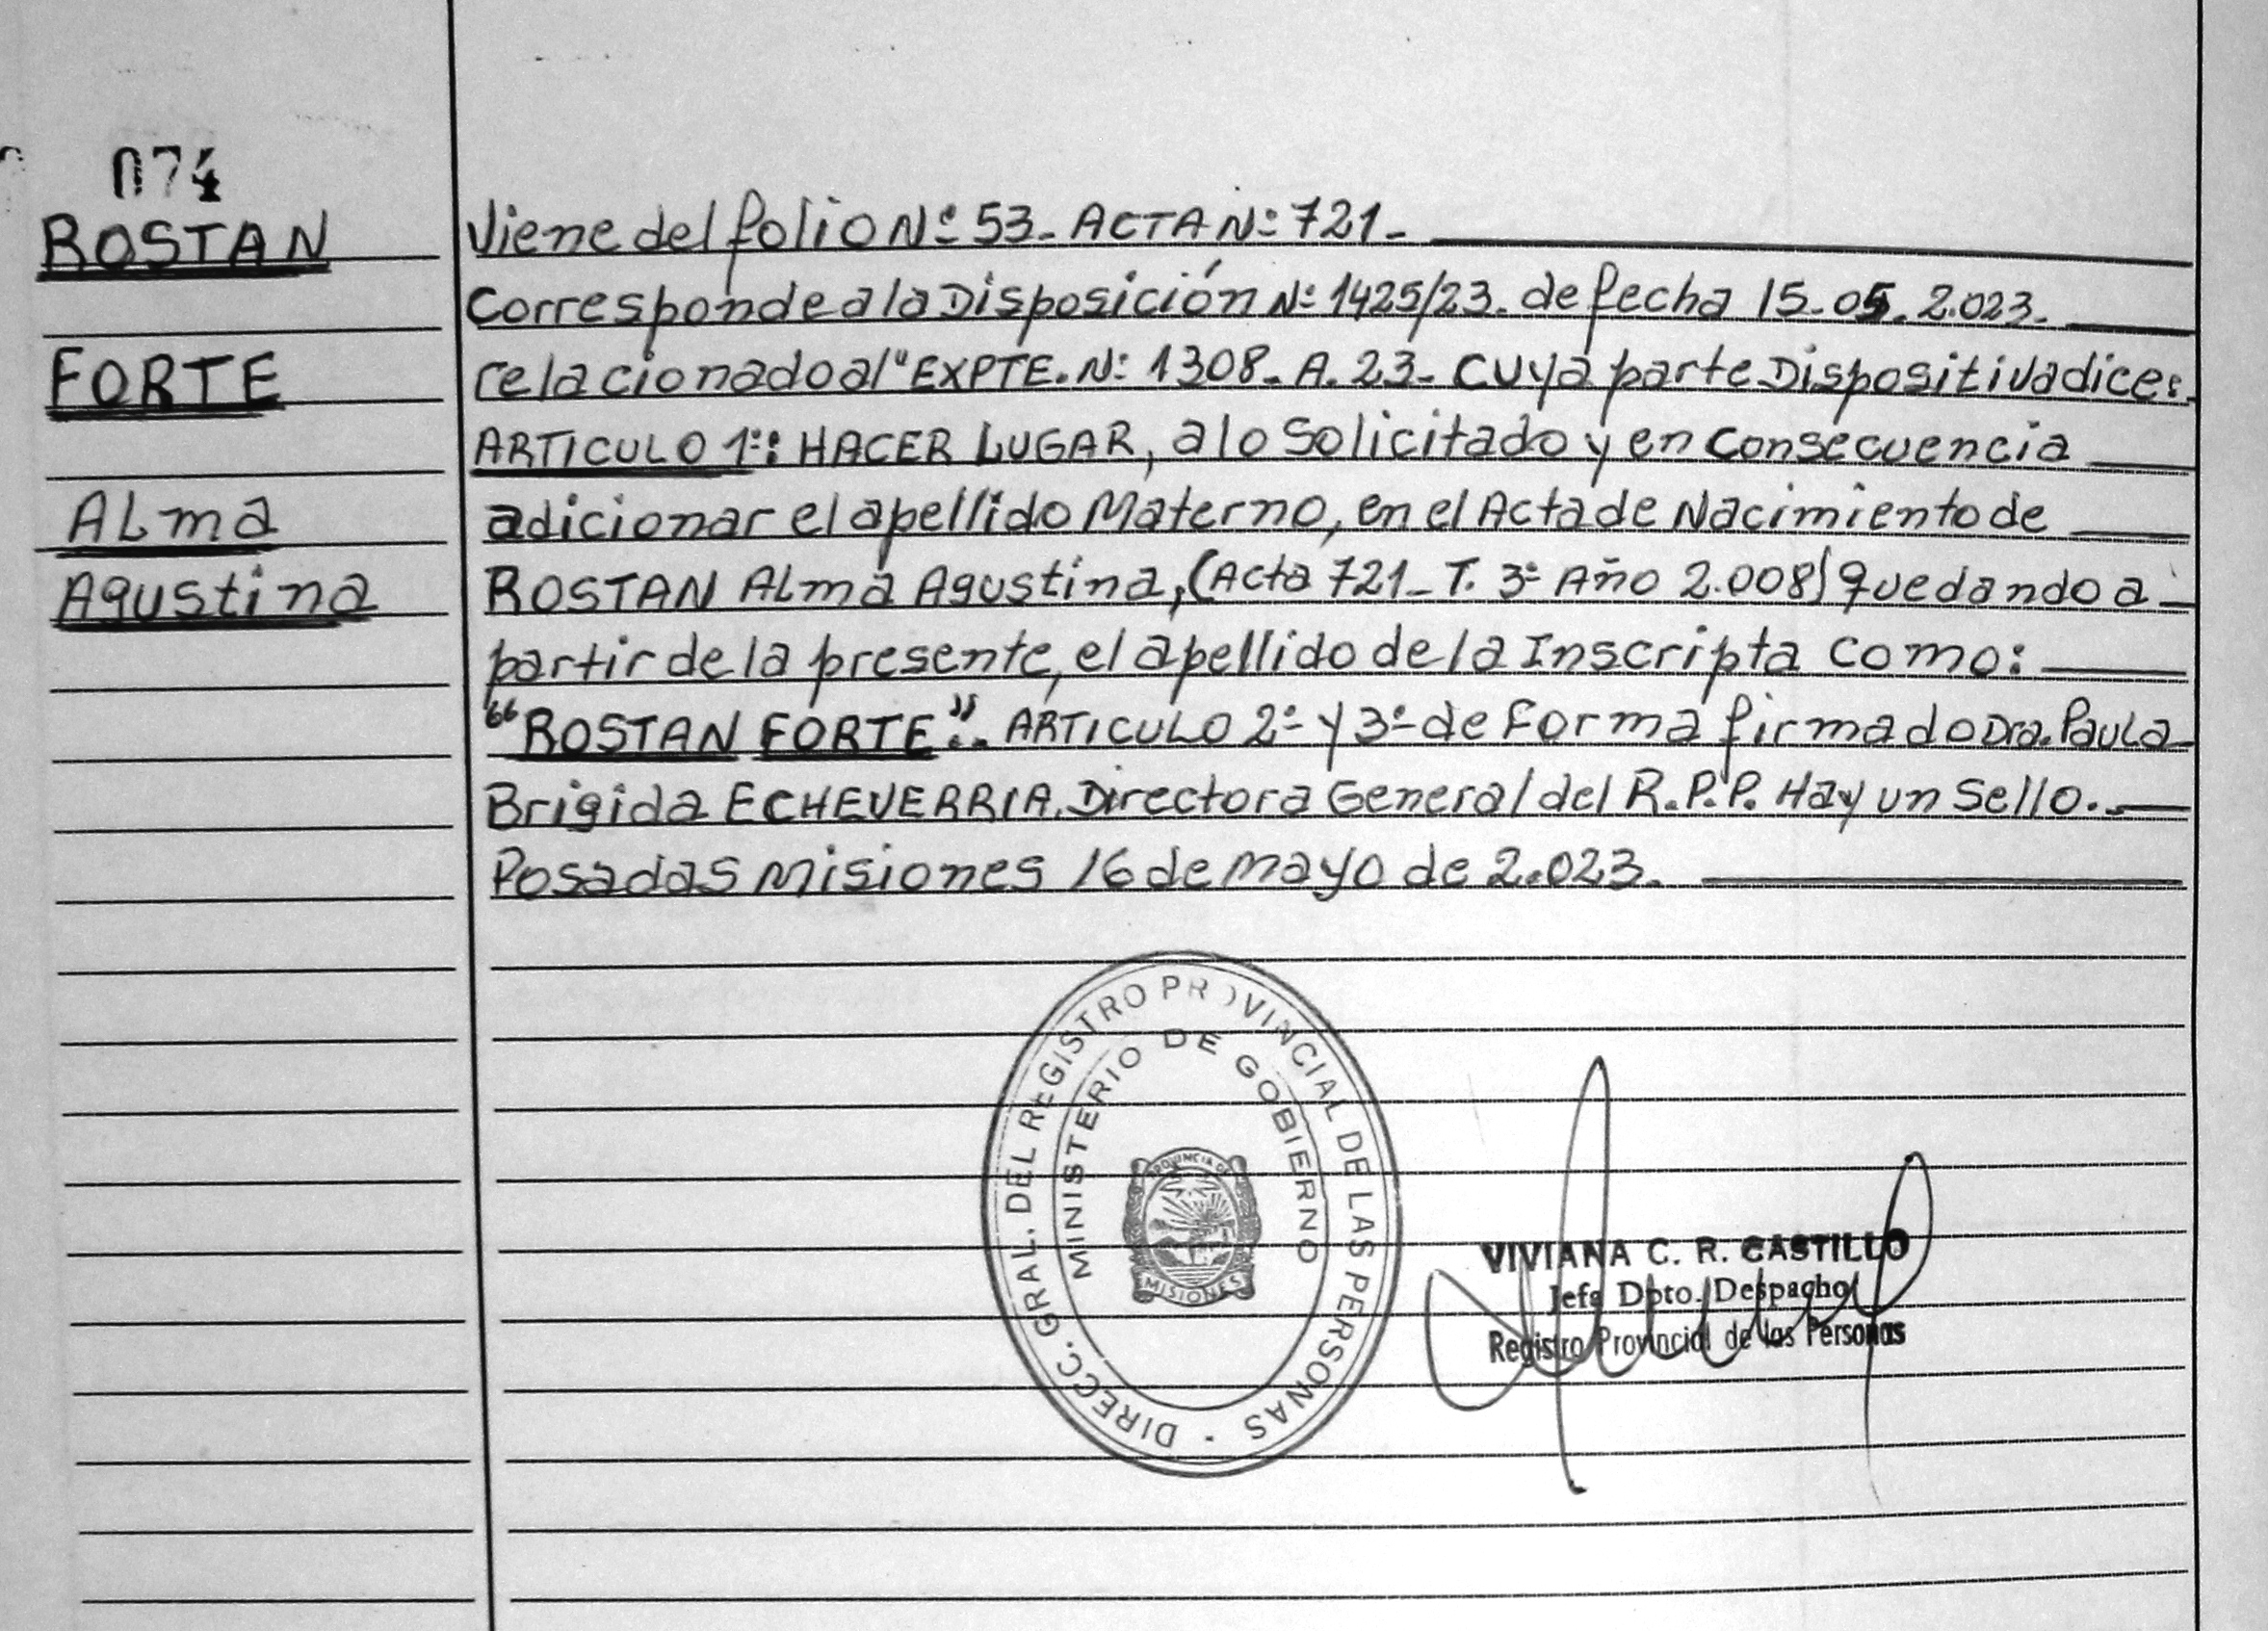 074
ROSTAN
FORTE
ALma
Agustina
Viene del folio Nº 53- ACTA Nº 721-
Corresponde a la Disposición Nº 1425/23. de fecha 15-05. 2.023.
relacionado al "EXPTE. Nº 1308- A. 23- cuya parte Dispositiva dice:
ARTICULO 1º: HACER LUGAR, a lo Solicitado y en Consecuencia
adicionar el apellido Materno, en el Acta de Nacimiento de
ROSTAN Alma Agustina, (Acta 721- T. 3º Año 2.008) quedando a
partir de la presente, el apellido de la Inscripta como:
"ROSTAN FORTE".. ARTICULO 2º y 3º de Forma firmado Dra. Paula
Brigida ECHEVERRIA. Directora General del R.P.P. Hay un Sello.
Posadas Misiones 16 de mayo de 2.023.
DIRECC. GRAL. DEL REGISTRO PROVINCIAL DE LAS PERSONAS
MINISTERIO DE GOBIERNO
PROVINCIA DE
MISIONES
VIVIANA C. R. CASTILLO
Jefa Dpto. Despacho
Registro Provincial de las Personas